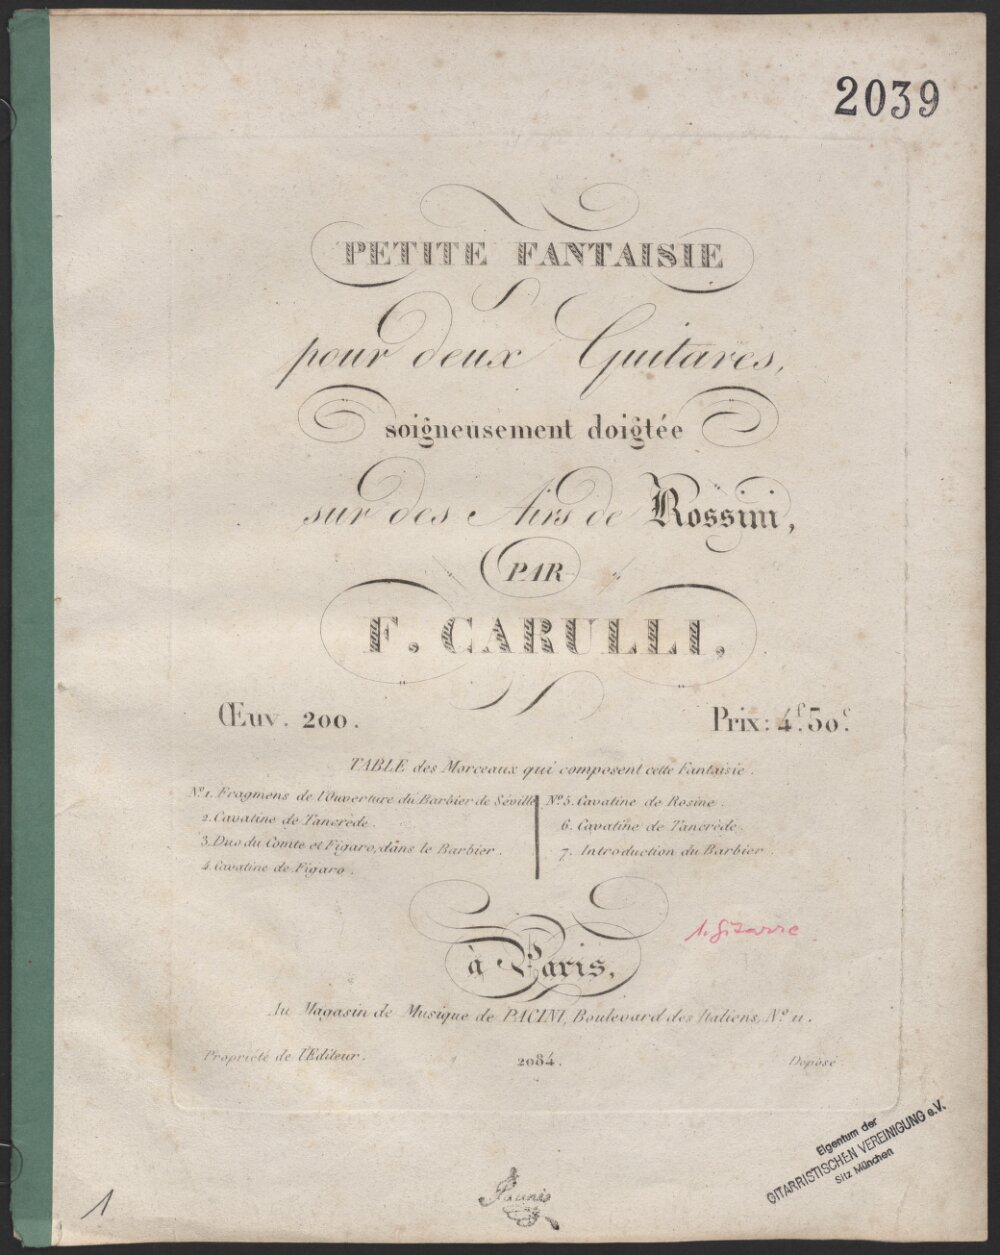 2039
PETITE FANTAISIE
pour deux Guitares,
soigneusement doigtée
sur des Airs de Rossini,
PAR
F. CARULLI,
Œuv. 200.
Prix: 4f. 50c.
TABLE des Morceaux qui composent cette Fantaisie.
No. 1. Fragmens de l'Ouverture du Barbier de Séville
2. Cavatine de Tancrède.
3. Duo du Comte et Figaro, dans le Barbier.
4. Cavatine de Figaro.
No. 5. Cavatine de Rosine.
6. Cavatine de Tancrède.
7. Introduction du Barbier.
1. Gitarre
à Paris,
Au Magasin de Musique de PACINI, Boulevard des Italiens, No. 11.
Propriété de l'Editeur.
2084.
Déposé.
Eigentum der
GITARRISTISCHEN VEREINIGUNG e.V.
Sitz München
1